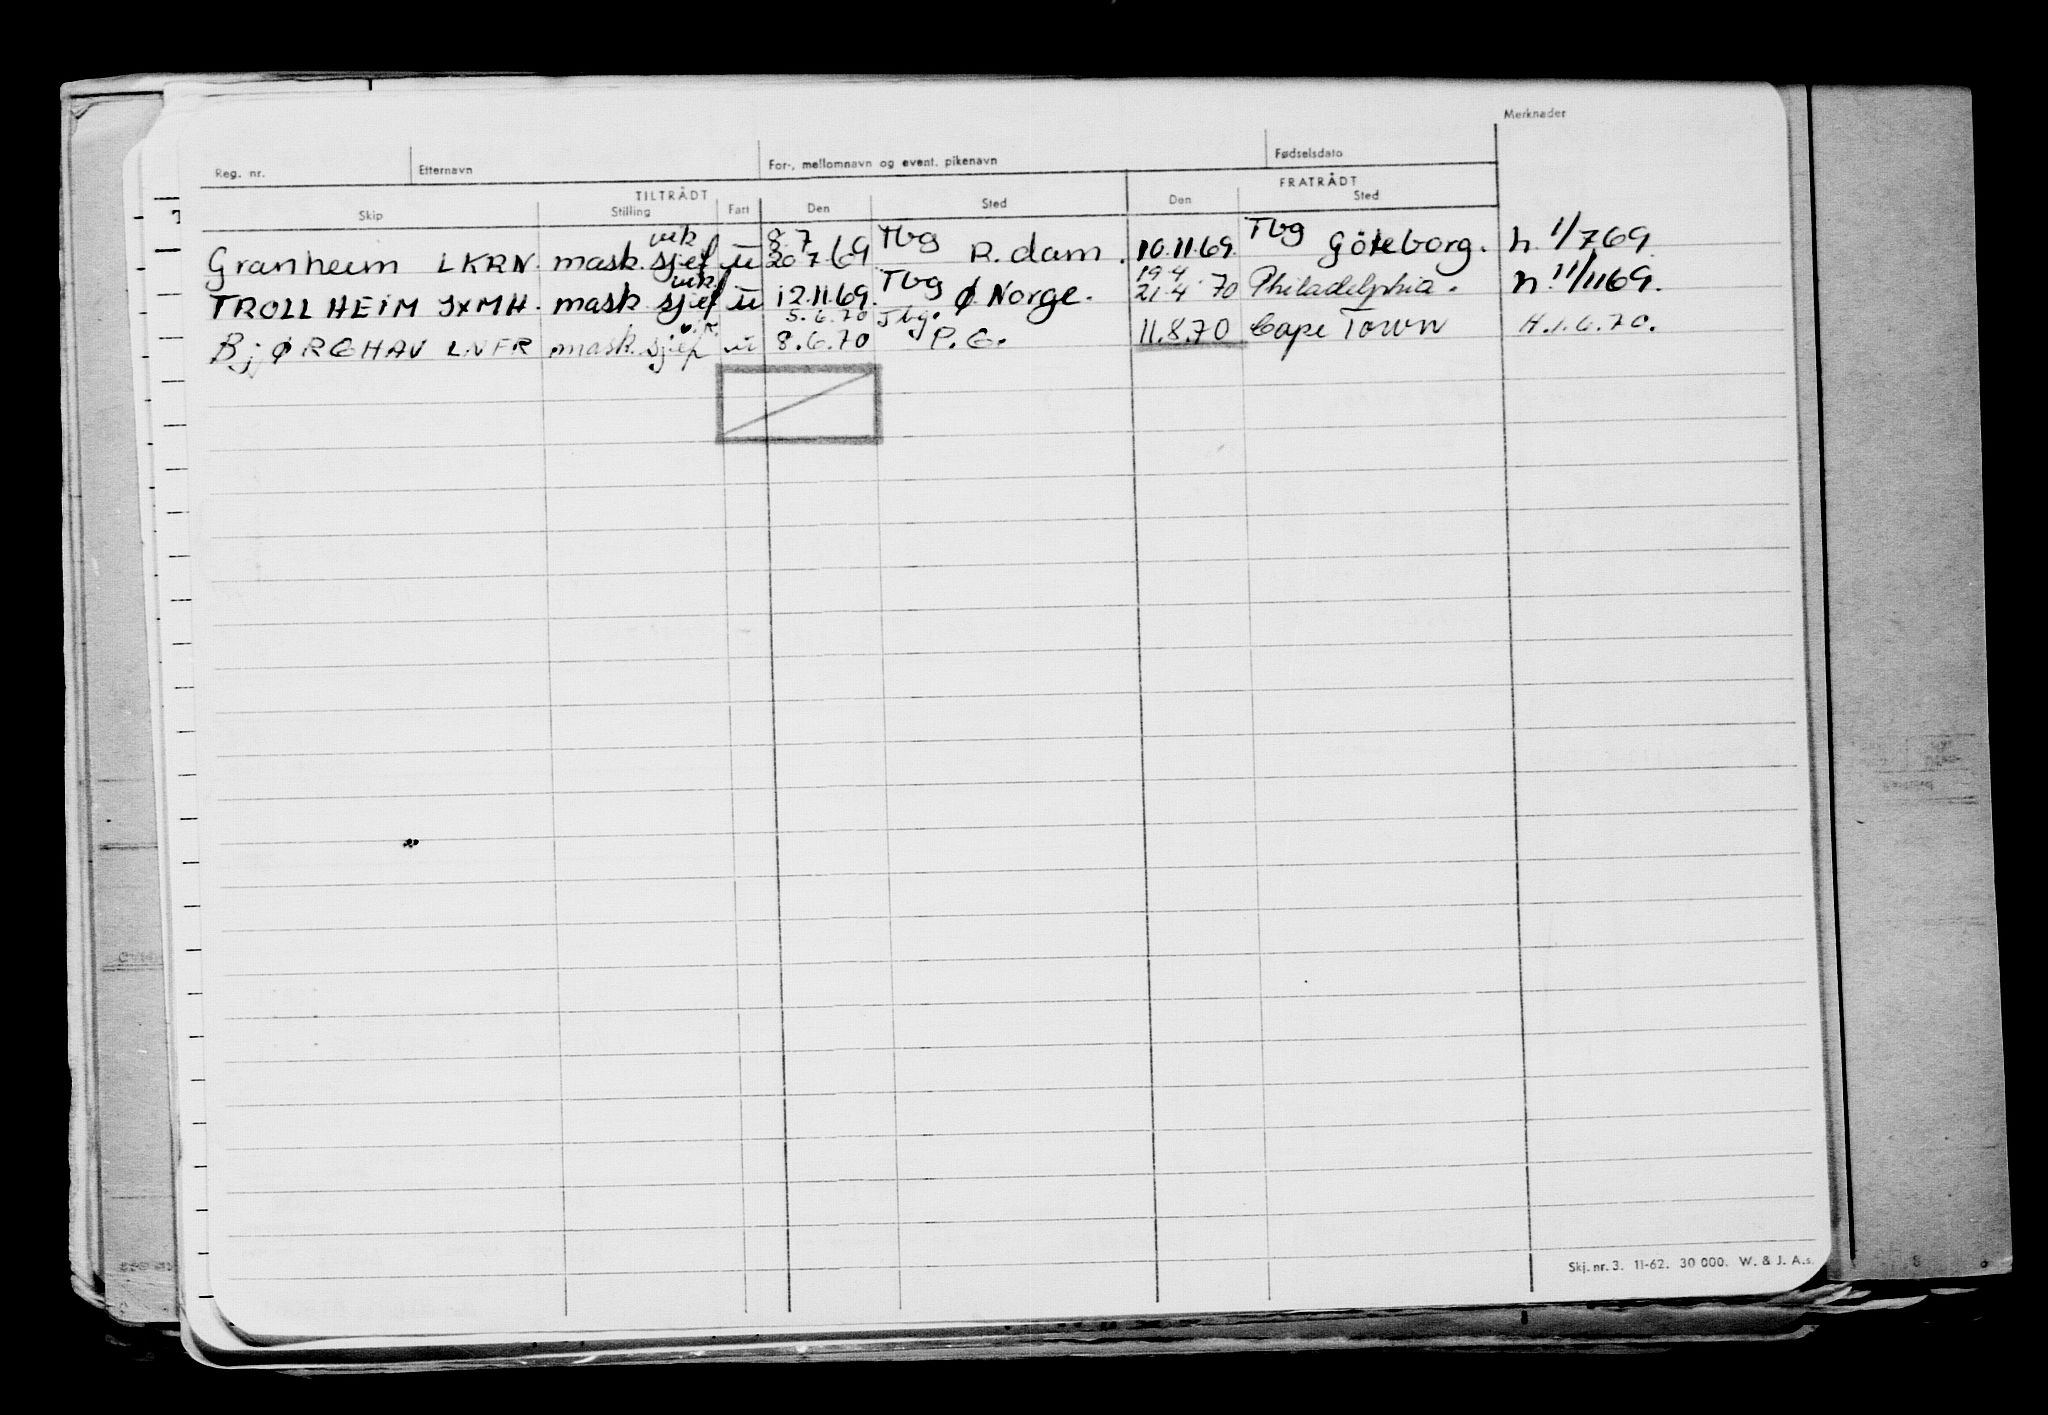 Merknader
Reg. nr. Etternavn For-, mellomnavn og event. pikenavn Fødselsdato
TILTRÅDT FRATRÅDT
Skip Stilling Fart Den Sted Den Sted
vik 8.7 Tbg Tbg
Granheim LKRN. mask. sjef u 20 7 69 R. dam. 10.11.69. Göteborg. h. 1/7 69.
vik Tbg 19 4
TROLLHEIM JXMH. mask sjef u 12.11.69. Ø Norge. 21 4 70 Philadelphia. h. 11/11 69.
vik 5.6.70 Tbg.
BjØRGHAV LNFR mask. sjef u 8.6.70 P.G. 11.8.70 Cape Town H.1.6.70.
Skj. nr. 3. 11-62. 30 000. W. & J. A.s.